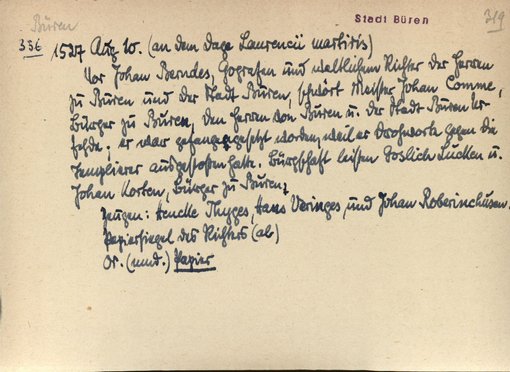 Büren
Stadt Büren
319
336 1527 Aug 10. (an dem dage Laurencii martiris)
Vor Johan Berndes, Gografen und weltlichem Richter der Herren
zu Büren und der Stadt Büren, schwört Meister Johan Comme,
Bürger zu Buren, den Herren von Büren u. der Stadt Büren Ur-
fehde; er war gefangengesetzt worden, weil er Drohworte gegen die
Templierer ausgestoßen hatte. Bürgschaft leisten Goslich Lucken u.
Johan Korten, Bürger zu Buren.
Zeugen: Hencke Thyges, Hans Veringes und Johan Roberinchusen.
Papiersiegel des Richters (ab)
Or. (mnd.) Papier